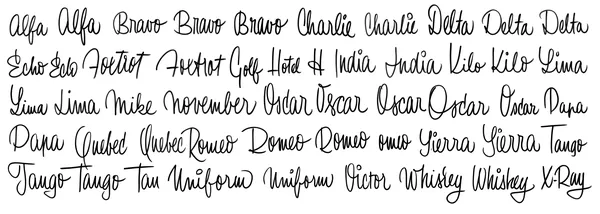 Alfa Alfa Bravo Bravo Bravo Charlie Charlie Delta Delta Delta
Echo Echo Foxtrot Foxtrot Golf Hotel H India India Kilo Kilo Lima
Lima Lima Mike November Oscar Oscar Oscar Oscar Oscar Papa
Papa Quebec Quebec Romeo Romeo Romeo omeo Sierra Sierra Tango
Tango Tango Tan Uniform Uniform Victor Whiskey Whiskey X-Ray